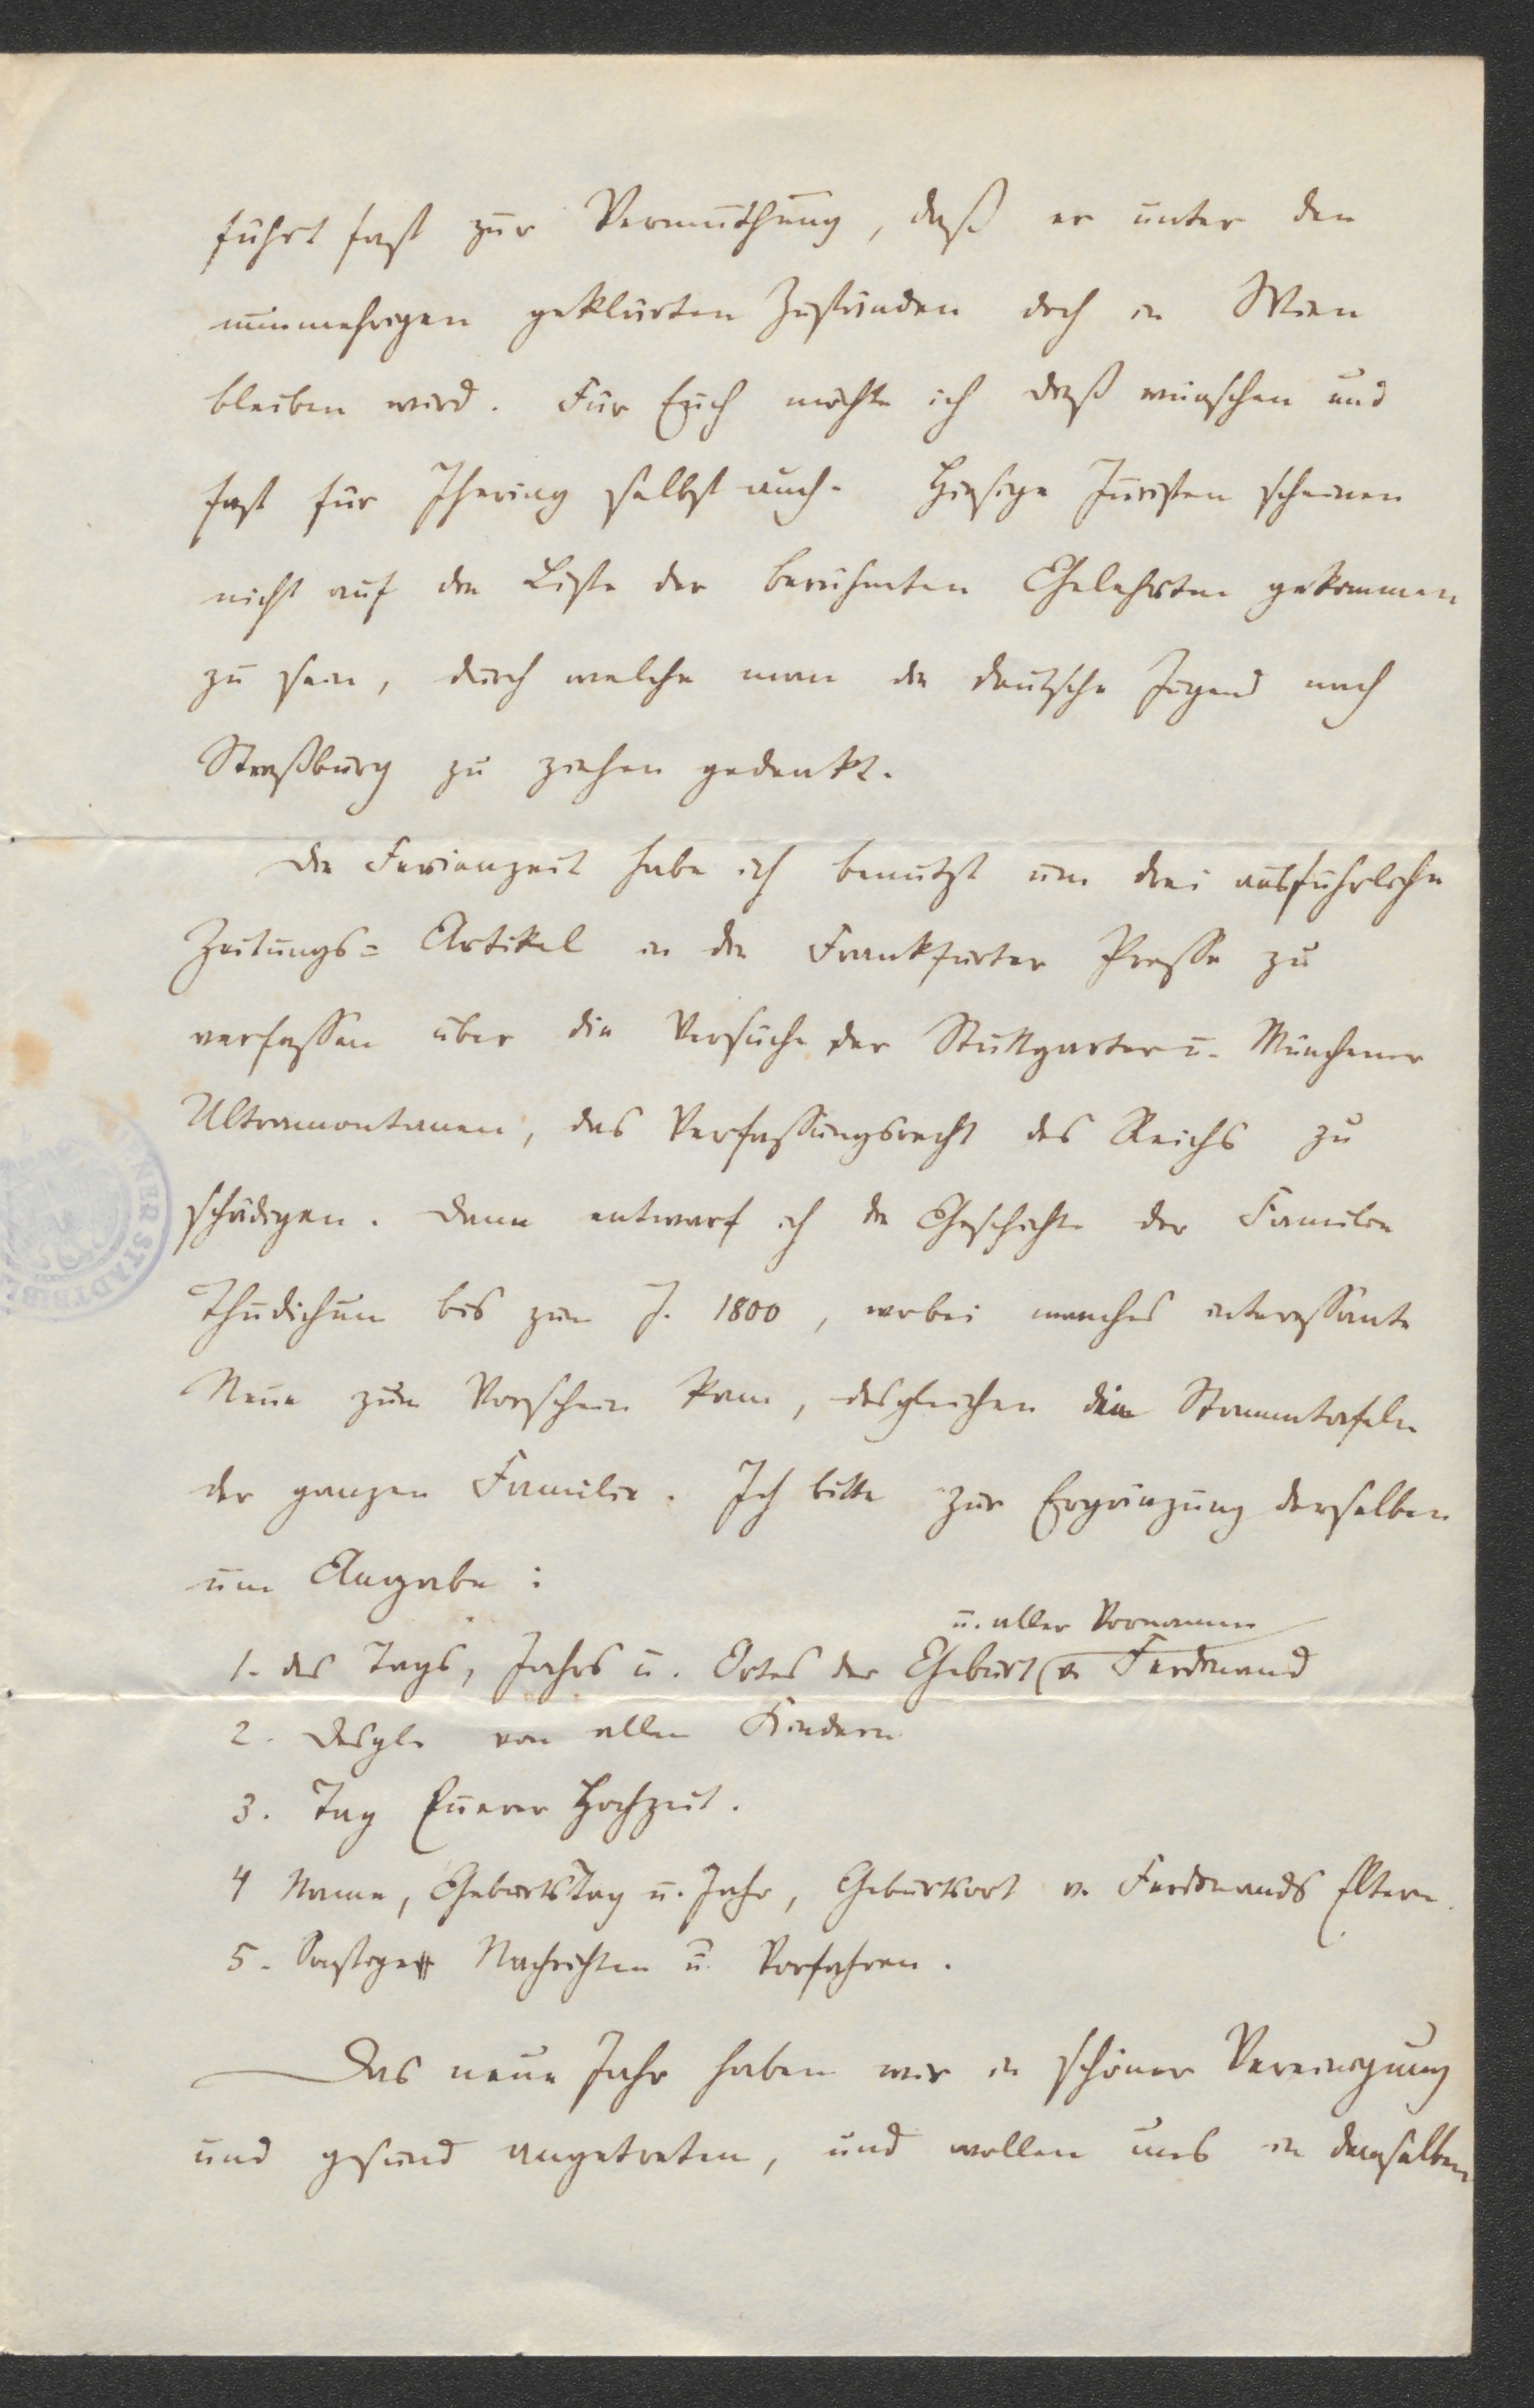 führt fast zur Vermuthung, daß er unter den
nunmehrigen geklärten Zuständen doch in Wien
bleiben wird. Für Euch möchte ich dieß wünschen und
fast für Ihering selbst auch. Hiesige Juristen scheinen
nicht auf die Liste der berühmten Gelehrten gekommen
zu sein, durch welche man die deutsche Jugend nach
Straßburg zu ziehen gedenkt.
Die Ferienzeit habe ich benutzt um drei ausführliche
Zeitungs=Artikel in der Frankfurter Presse zu
verfassen über die Versuche der Stuttgarter u. Münchener
Ultramontanen, das Verfassungsrecht des Reichs zu
schädigen. Dann entwarf ich die Geschichte der Familie
Thudichum bis zum J. 1800, wobei manches interessante
Neue zum Vorschein kam, desgleichen die Stammtafeln
der ganzen Familie. Ich bitte zur Ergänzung derselben
um Angabe:
u. aller Vornamen
1. des Tags, Jahrs u. Ortes der Geburt v. Ferdinand
2. Desgl. von allen Kindern
3. Tag Euerer Hochzeit.
4 Name, Geburtstag u. Jahr, Geburtsort v. Ferdinands Eltern.
5. Sonstige Nachrichten ü. Vorfahren.
Das neue Jahr haben wir in schöner Vereinigung
und gesund angetreten, und wollen uns in demselben